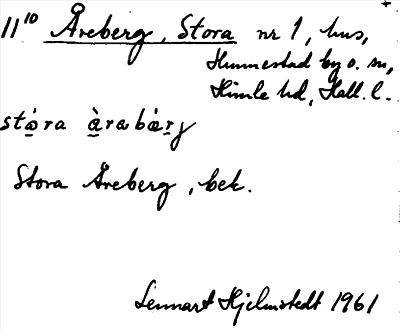 11¹⁰ Åreberg, Stora nr 1, hus,
Hunnestad by o. sn,
Himle hd, Hall. l.
stǿra àrabærj
Stora Åreberg, bek.
Lennart Hjelmstedt 1961